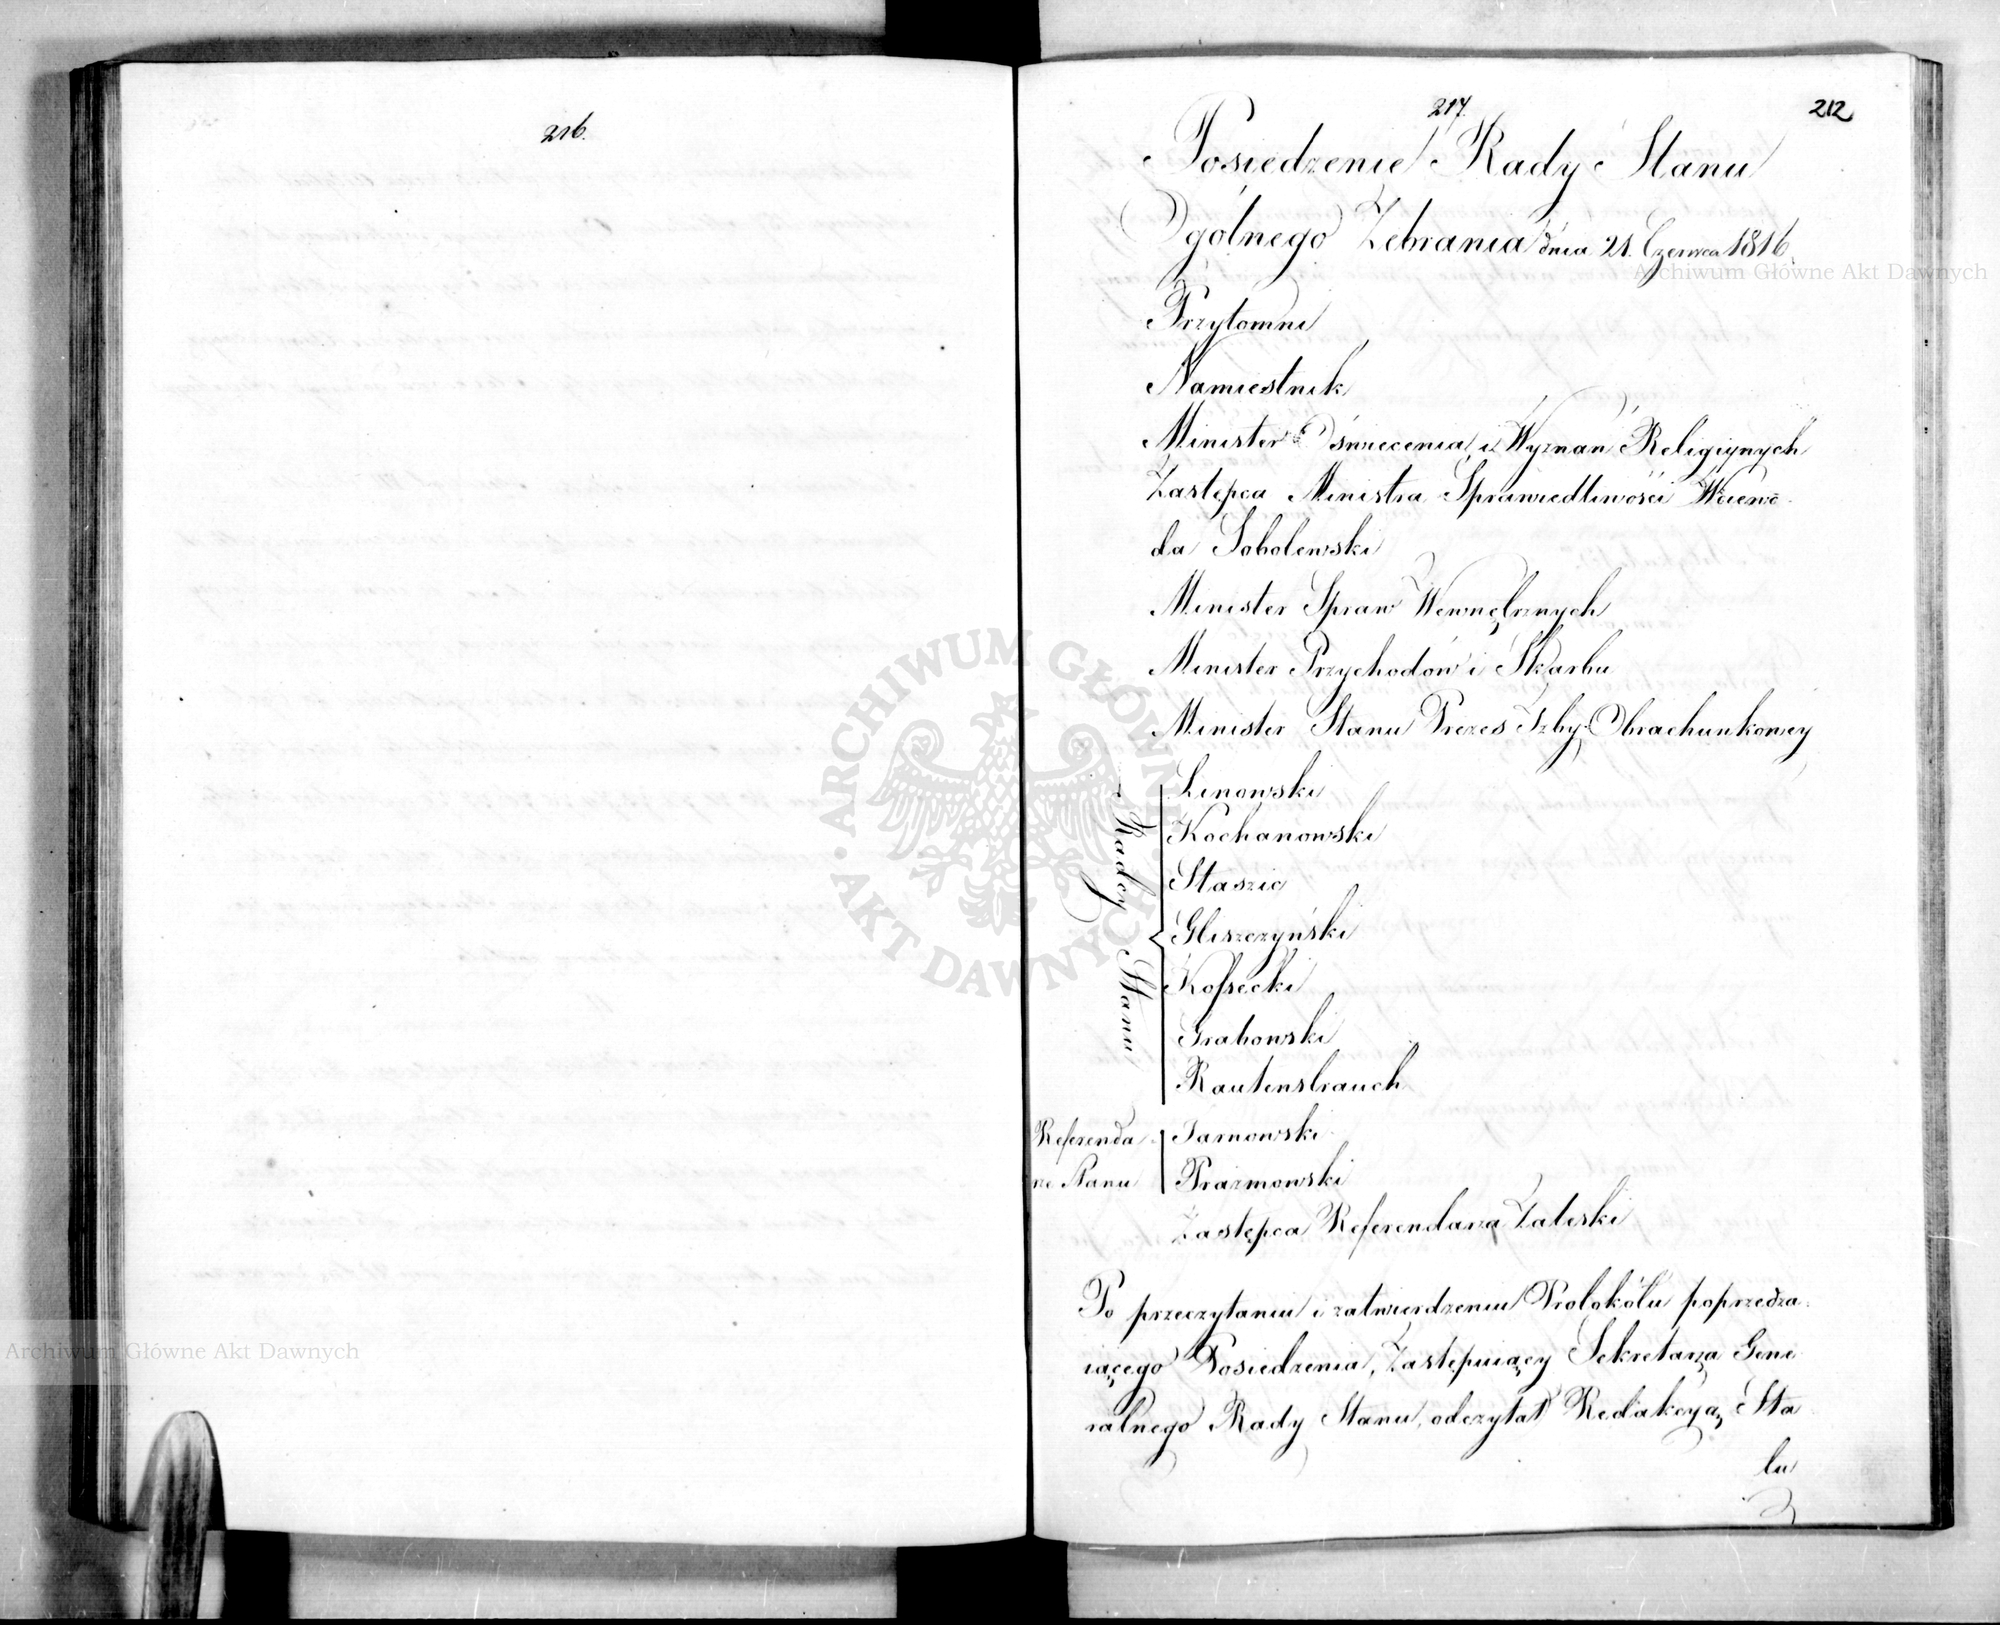 216.
217.
212
Posiedzenie Rady Stanu
Ogólnego Zebrania dnia 21. Czerwca 1816.
Przytomni
Namiestnik
Minister Oświecenia i Wyznań Religiynych
Zastępca Ministra Sprawiedliwości Woiewo-
da Sobolewski
Minister Spraw Wewnętrznych
Minister Przychodów i Skarbu
Minister Stanu Prezes Izby Obrachunkowey
Radcy Stanu
Linowski
Kochanowski
Staszic
Gliszczyński
Kossecki
Grabowski
Rautenstrauch
Referenda-
rze Stanu
Tarnowski
Prazmowski
Zastępca Referendarza Zaleski
Po przeczytaniu i zatwierdzeniu Protokółu poprzedza-
iącego Posiedzenia, Zastępuiący Sekretarza Gene-
ralnego Rady Stanu, odczytał Redakcyą Sta-
tu
Archiwum Główne Akt Dawnych
Archiwum Główne Akt Dawnych
ARCHIWUM GŁÓWNE AKT DAWNYCH